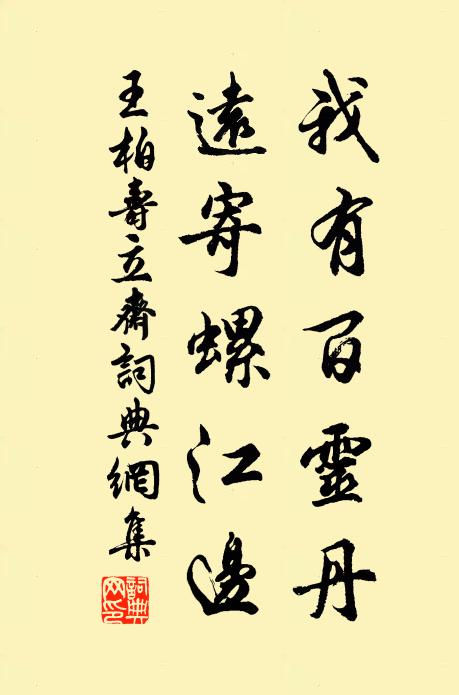 我有百靈丹
遠寄螺江邊
王柏壽立齋詞典網集
詞典網印